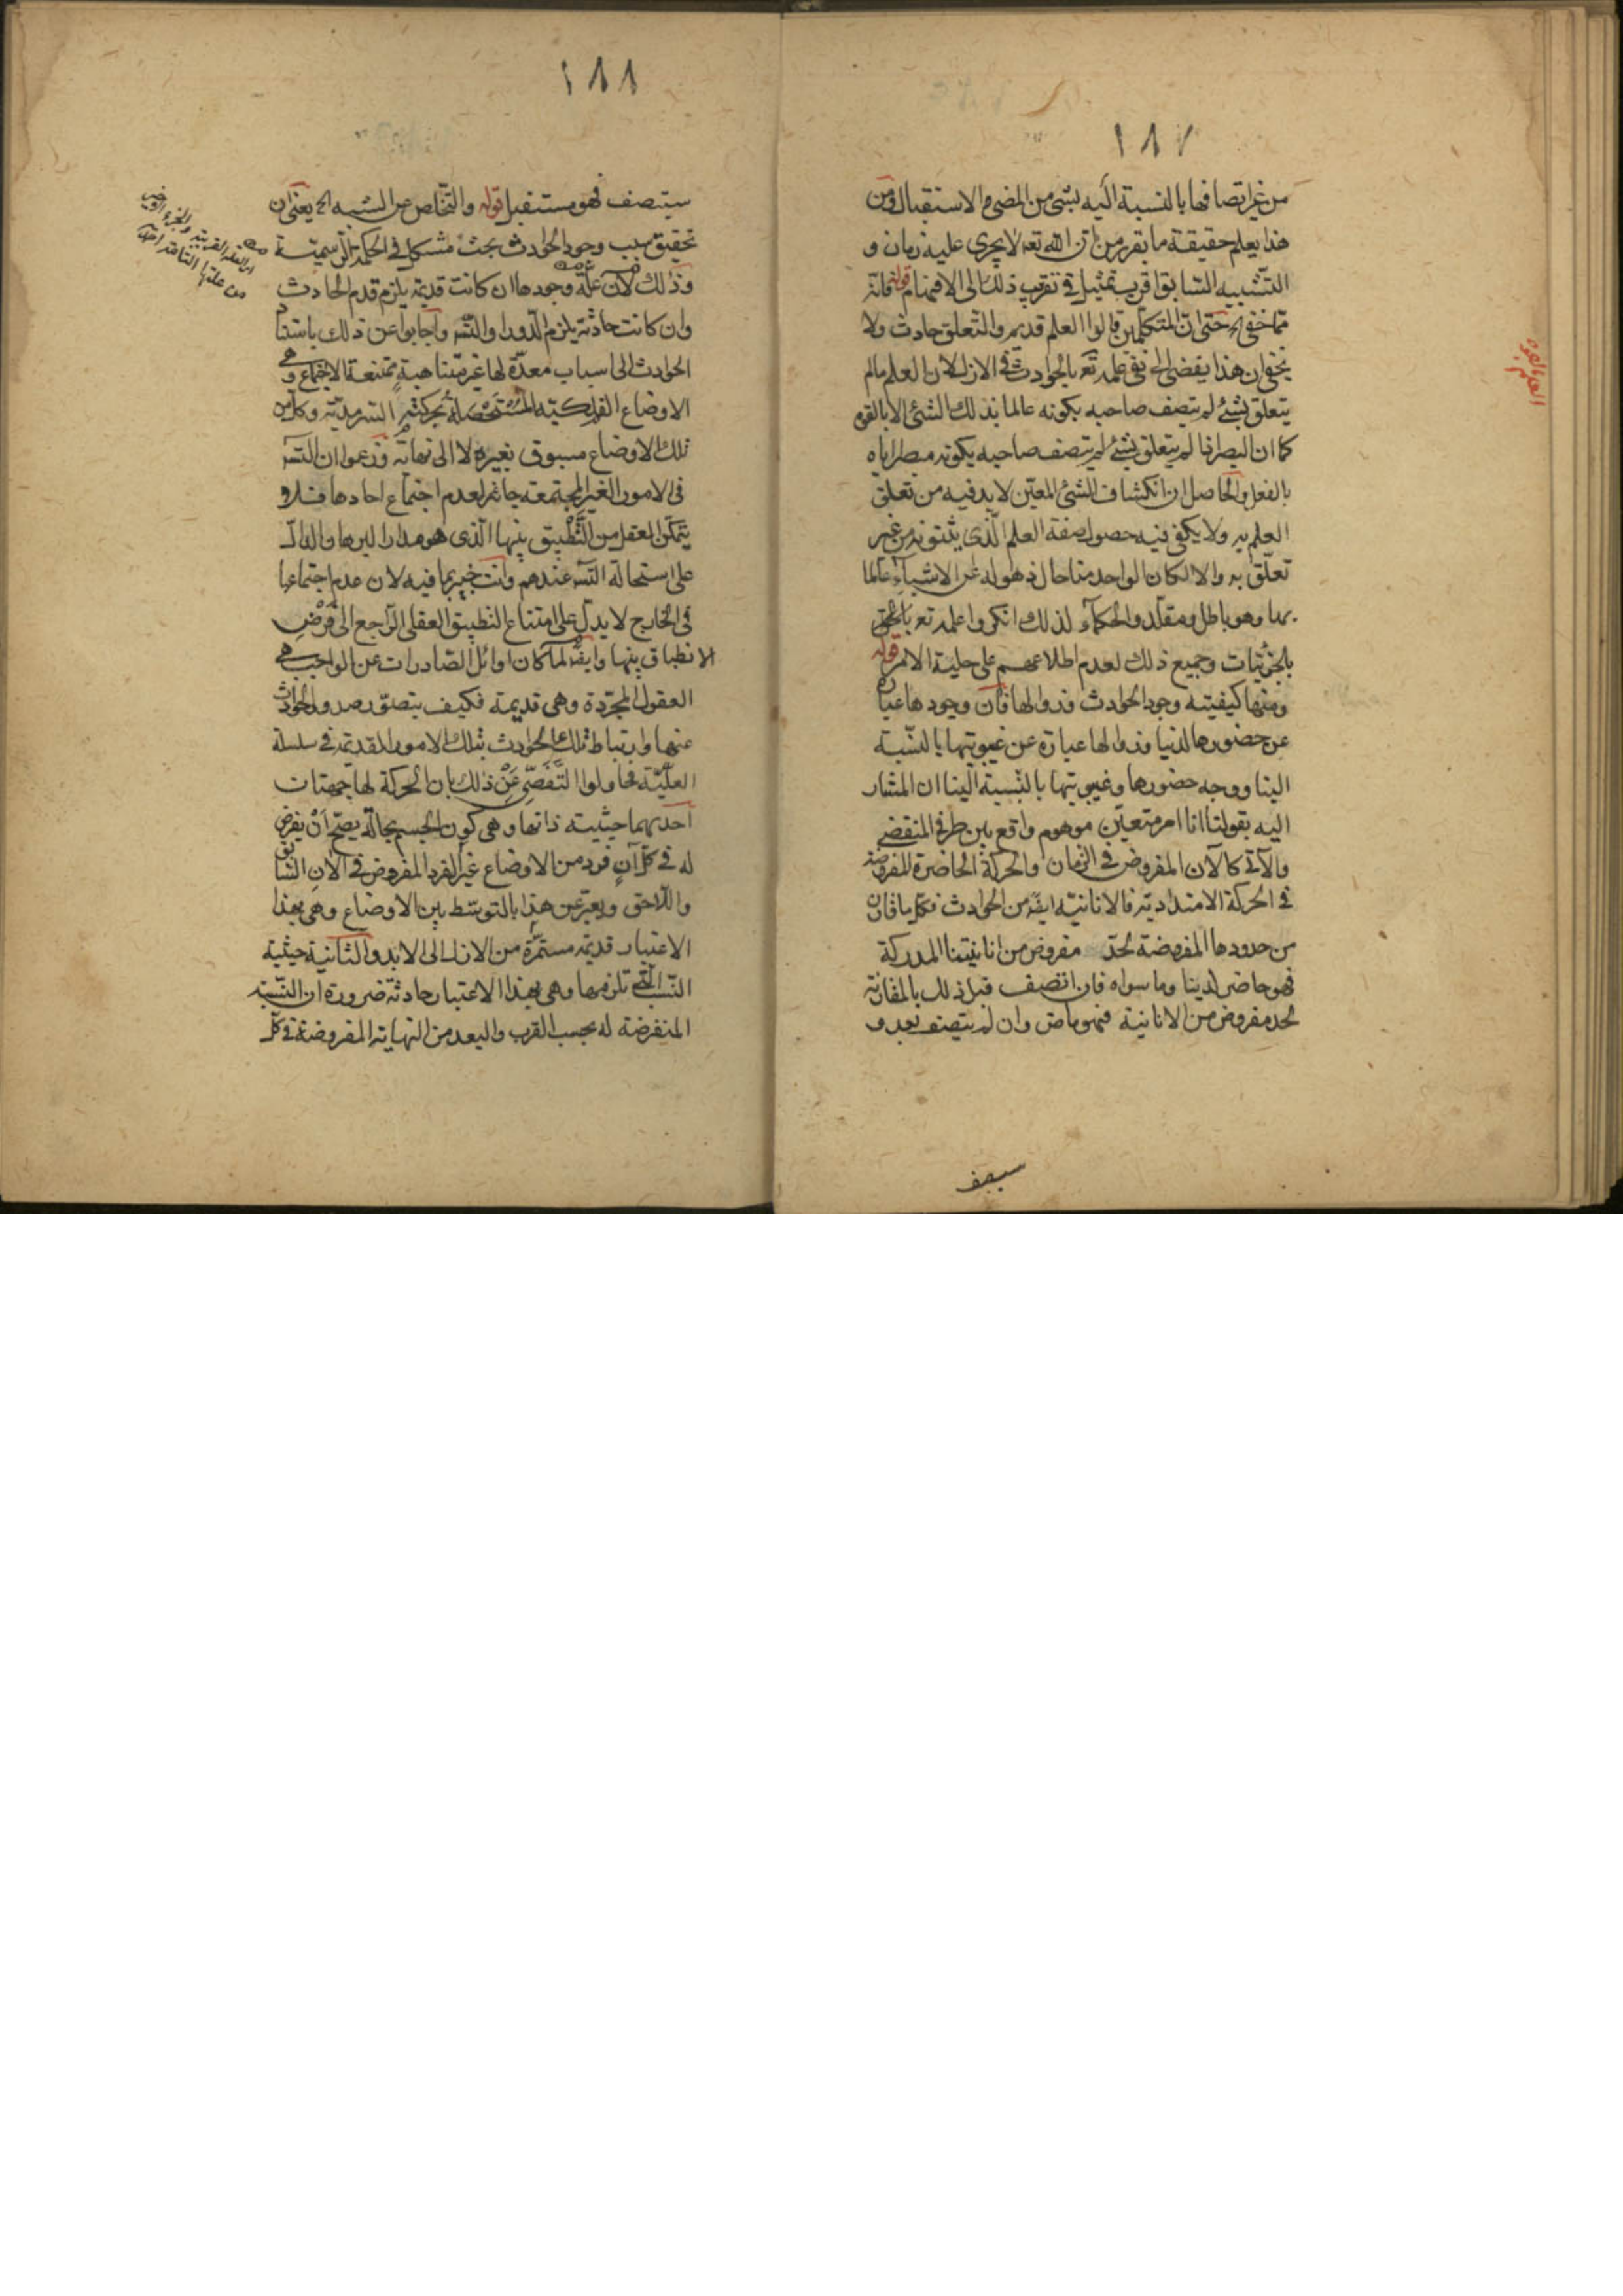 ١٨٧
من غير اتصافها بالنسبة اليه بشئ من المضى والاستقبال ومن
هذا يعلم حقيقة ما تقرر من ان الله تعه لا يجرى عليه زمان و
التشبيه السابق اقرب تمثيل فى تقريب ذلك الى الافهام قوله فانه
مما خفى الخ حتى ان المتكلمين قالوا العلم قديم والتعلق حادث ولا
يخفى ان هذا يفضى الى نفى علمه تعه بالحوادث فى الازل لان العلم مالم
يتعلق بشئ لم يتصف صاحبه بكونه عالما بذلك الشئ الا بالقوة
كما ان البصر اذا لم يتعلق بشئ لم يتصف صاحبه بكونه مبصرا اياه
بالفعل والحاصل ان انكشاف الشئ المعين لا بد فيه من تعلق
العلم به ولا يكفى فيه حصول صفة العلم الذى يثبتونه من غير
تعلق به والا لكان الواحد منا حال ذهوله عن الاشياء عالما
بها وهو باطل ومقلدو الحكماء لذلك انكروا علمه تعه
بالجزئيات وجميع ذلك لعدم اطلاعهم على جلية الامر قوله
ومنها كيفيته وجود الحوادث وزوالها فان وجودها عبارة
عن حضورها لدنيا وزوالها عبارة عن غيبوبتها بالنسبة
الينا ووجه حضورها وغيبوبتها بالنسبة الينا ان المشار
اليه بقولنا انا امر متعين موهوم واقع بين طرفى المنقضى
والآتى كالآن المفروض فى الزمان والحركة الحاضرة المفروضة
فى الحركة الامتدادية فالانانية ايضه من الحوادث فكل ما قارن
من حدودها المفروضة لحد مفروض من انانيتنا المدركة
فهو حاضر لدينا وما سواه فان اتصف قبل ذلك بالمقارنة
لحد مفروض من الانانية فهو ماض وان لم يتصف بعد و
سيصف
١٨٨
سيتصف فهو مستقبل قوله والتخلص عن الشبه الخ يعنى ان
تحقيق سبب وجود الحوادث بحث مشكل فى الحكمة الرسمية
وذلك لان علة وجودها ان كانت قديمة يلزم قدم الحادث
وان كانت حادثة يلزم الدور او التسه واجابوا عن ذلك باستناد
الحوادث الى اسباب معدة لها غير متناهية ممتنعة الاجتماع وهى
الاوضاع الفلكية المستحصلة بحركته السرمدية وكل من
تلك الاوضاع مسبوق بغيره لا الى نهاية وزعموا ان التسه
فى الامور الغير المجتمعة جائز لعدم اجتماع احادها فلا
يتمكن العقل من التطبيق بينها الذى هو مدار البرهان الدال
على استحالة التسه عندهم وانت خبير بما فيه لان عدم اجتماعها
فى الخارج لا يدل على امتناع التطبيق العقلى الراجع الى فرض
الانطباق بينها وايضه لما كان اوائل الصادرات عن الواجب هى
العقول المجردة وهى قديمة فكيف يتصور صدور الحوادث
عنها وارتباط تلك الحوادث بتلك الامور القديمة فى سلسلة
العلية فحاولوا التفصى عن ذلك بان الحركة لها جهتان
احديهما حيثية ذاتها وهى كون الجسم بحالة يصح ان يفرض
له فى كل آن فرد من الاوضاع غير الفرد المفروض فى الآن السابق
واللاحق ويعبر عن هذا بالتوسط بين الاوضاع وهى بهذا
الاعتبار قديمة مستمرة من الازل الى الابد والثانية حيثية
النسب التى تلزمها وهى بهذا الاعتبار حادثة ضرورة ان النسبة
المنفرضة له بحسب القرب والبعد من النهاية المفروضة فى كل